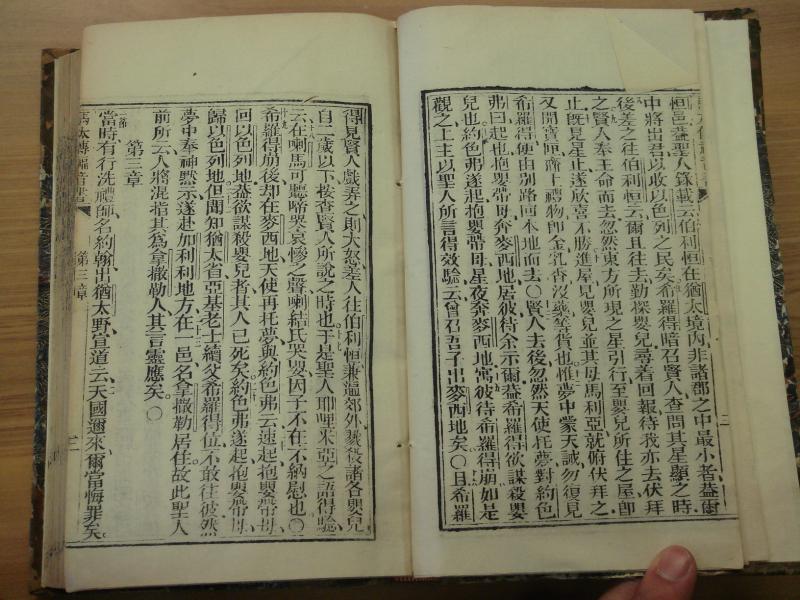 恒邑蓋聖人錄載云伯利恒在猶太境內非諸郡之中最小者蓋爾
中將出君以收以色列之民矣希羅得暗召賢人查問其星顯之時
後差之往伯利恒云爾且往去勤探嬰兒尋着回報待我亦去伏拜
之賢人奉王命而去忽然東方所現之星引行至嬰兒所住之屋即
止既見星止遂欣喜不勝進屋見嬰兒並其母馬利亞就俯伏拜之
又開寶匣齋上禮物即金乳香沒藥等貨也惟夢中蒙天誡勿復見
希羅得便由別路回本地而去〇賢人去後忽然天使托夢對約色
弗曰起也抱嬰帶母奔麥西地居彼待余示爾蓋希羅得欲謀殺嬰
兒也約色弗遂起抱嬰帶母星夜奔麥西地寓彼待希羅得崩如是
觀之上主以聖人所言得效驗云曾召吾子出麥西地矣〇且希羅
二
得見賢人戲弄之則大怒差人往伯利恒兼遍郊外殺諸各嬰兒
自二歲以下按查賢人所說之時也于是聖人耶哩米亞之語得驗
云在喇馬可聽啼哭哀慘之聲喇結氏哭嬰因子不在不納慰也〇
希羅得崩後却在麥西地天使再托夢與約色弗云速起抱嬰帶母
回以色列地蓋欲謀殺嬰兒者其人已死矣約色弗遂起抱嬰帶母
歸以色列地但聞知猶太省亞基老士續父希羅得位不敢往彼然
夢中奉神默示遂赴加利利地方在一邑名拿撒勒居住故此聖人
前所云人將混指其爲拿撒勒人其言靈應矣〇
第三章
一節
當時有行洗禮師名約翰出猶太野宣道云天國邇來爾當悔罪矣
馬太傳福音書
第三章
三